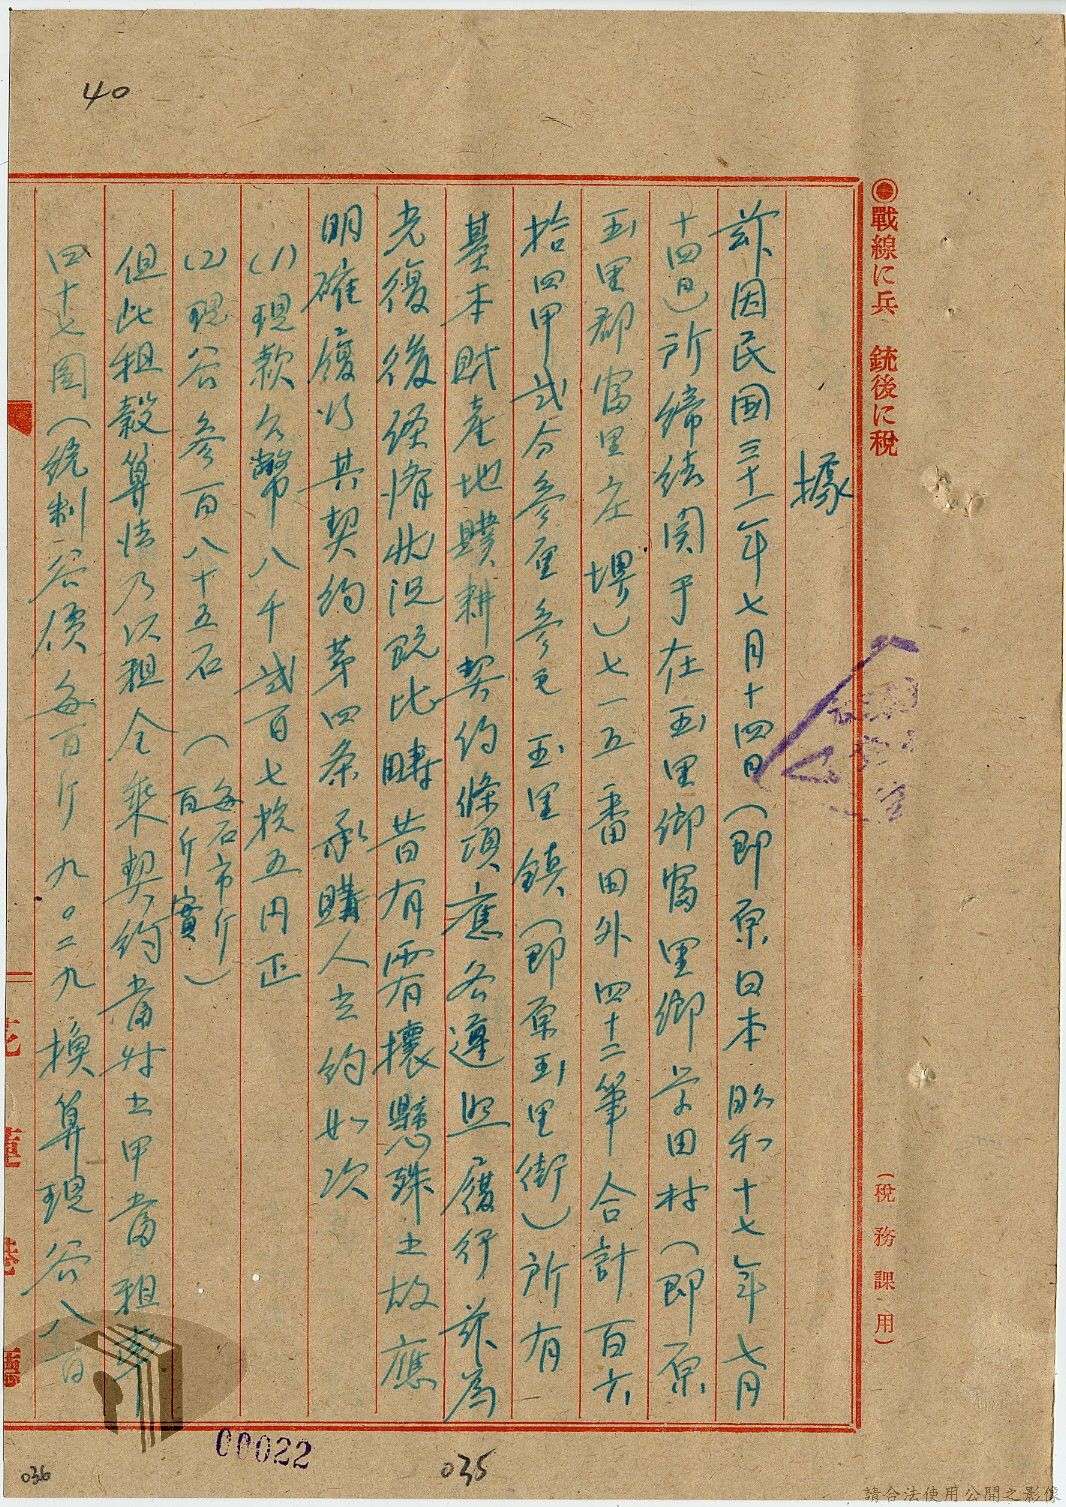 40
◉戰線に兵 銃後に稅
(稅務課用)
據
茲因民国三十一年七月十四日(即原日本昭和十七年七月
十四日)所締結関于在玉里鄉富里鄉学田村(即原
玉里郡富里庄堺)七一五番田外四十二筆合計百六
拾四甲弍分參厘參毛玉里鎮(即原玉里街)所有
基本財產地贌耕契約條項應各遵照履行茲為
光復後經濟狀況既比疇昔有霄壤懸殊之故應
明確履行其契約第四条承購人之約如次
(1)現款台幣八千弍百七拾五円正
(2)現谷參百八十五石(每石市斤百斤實)
但此租穀算法乃以租金乘契約當時之甲當租率
四十七圓(統制谷價每百斤九。二九換算現谷八百
花蓮港廳
00022
035
036
請合法使用公開之影像